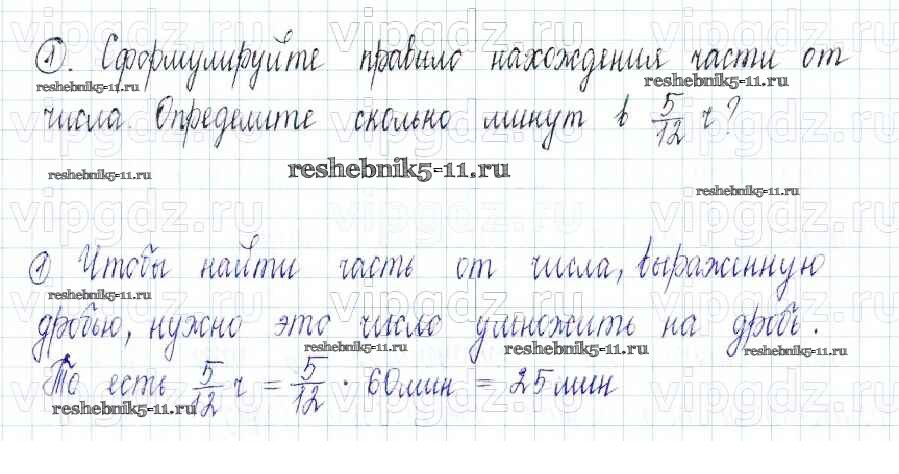 ①. Сформулируйте правило нахождения части от
reshebnik5-11.ru reshebnik5-11.ru
числа. Определите сколько минут в 5/12 ч?
reshebnik5-11.ru reshebnik5-11.ru reshebnik5-11.ru
① Чтобы найти часть от числа, выраженную
reshebnik5-11.ru
дробью, нужно это число умножить на дробь.
reshebnik5-11.ru reshebnik5-11.ru reshebnik5-11.ru
То есть 5/12 ч = 5/12 · 60 мин = 25 мин
reshebnik5-11.ru
vipgdz.ru